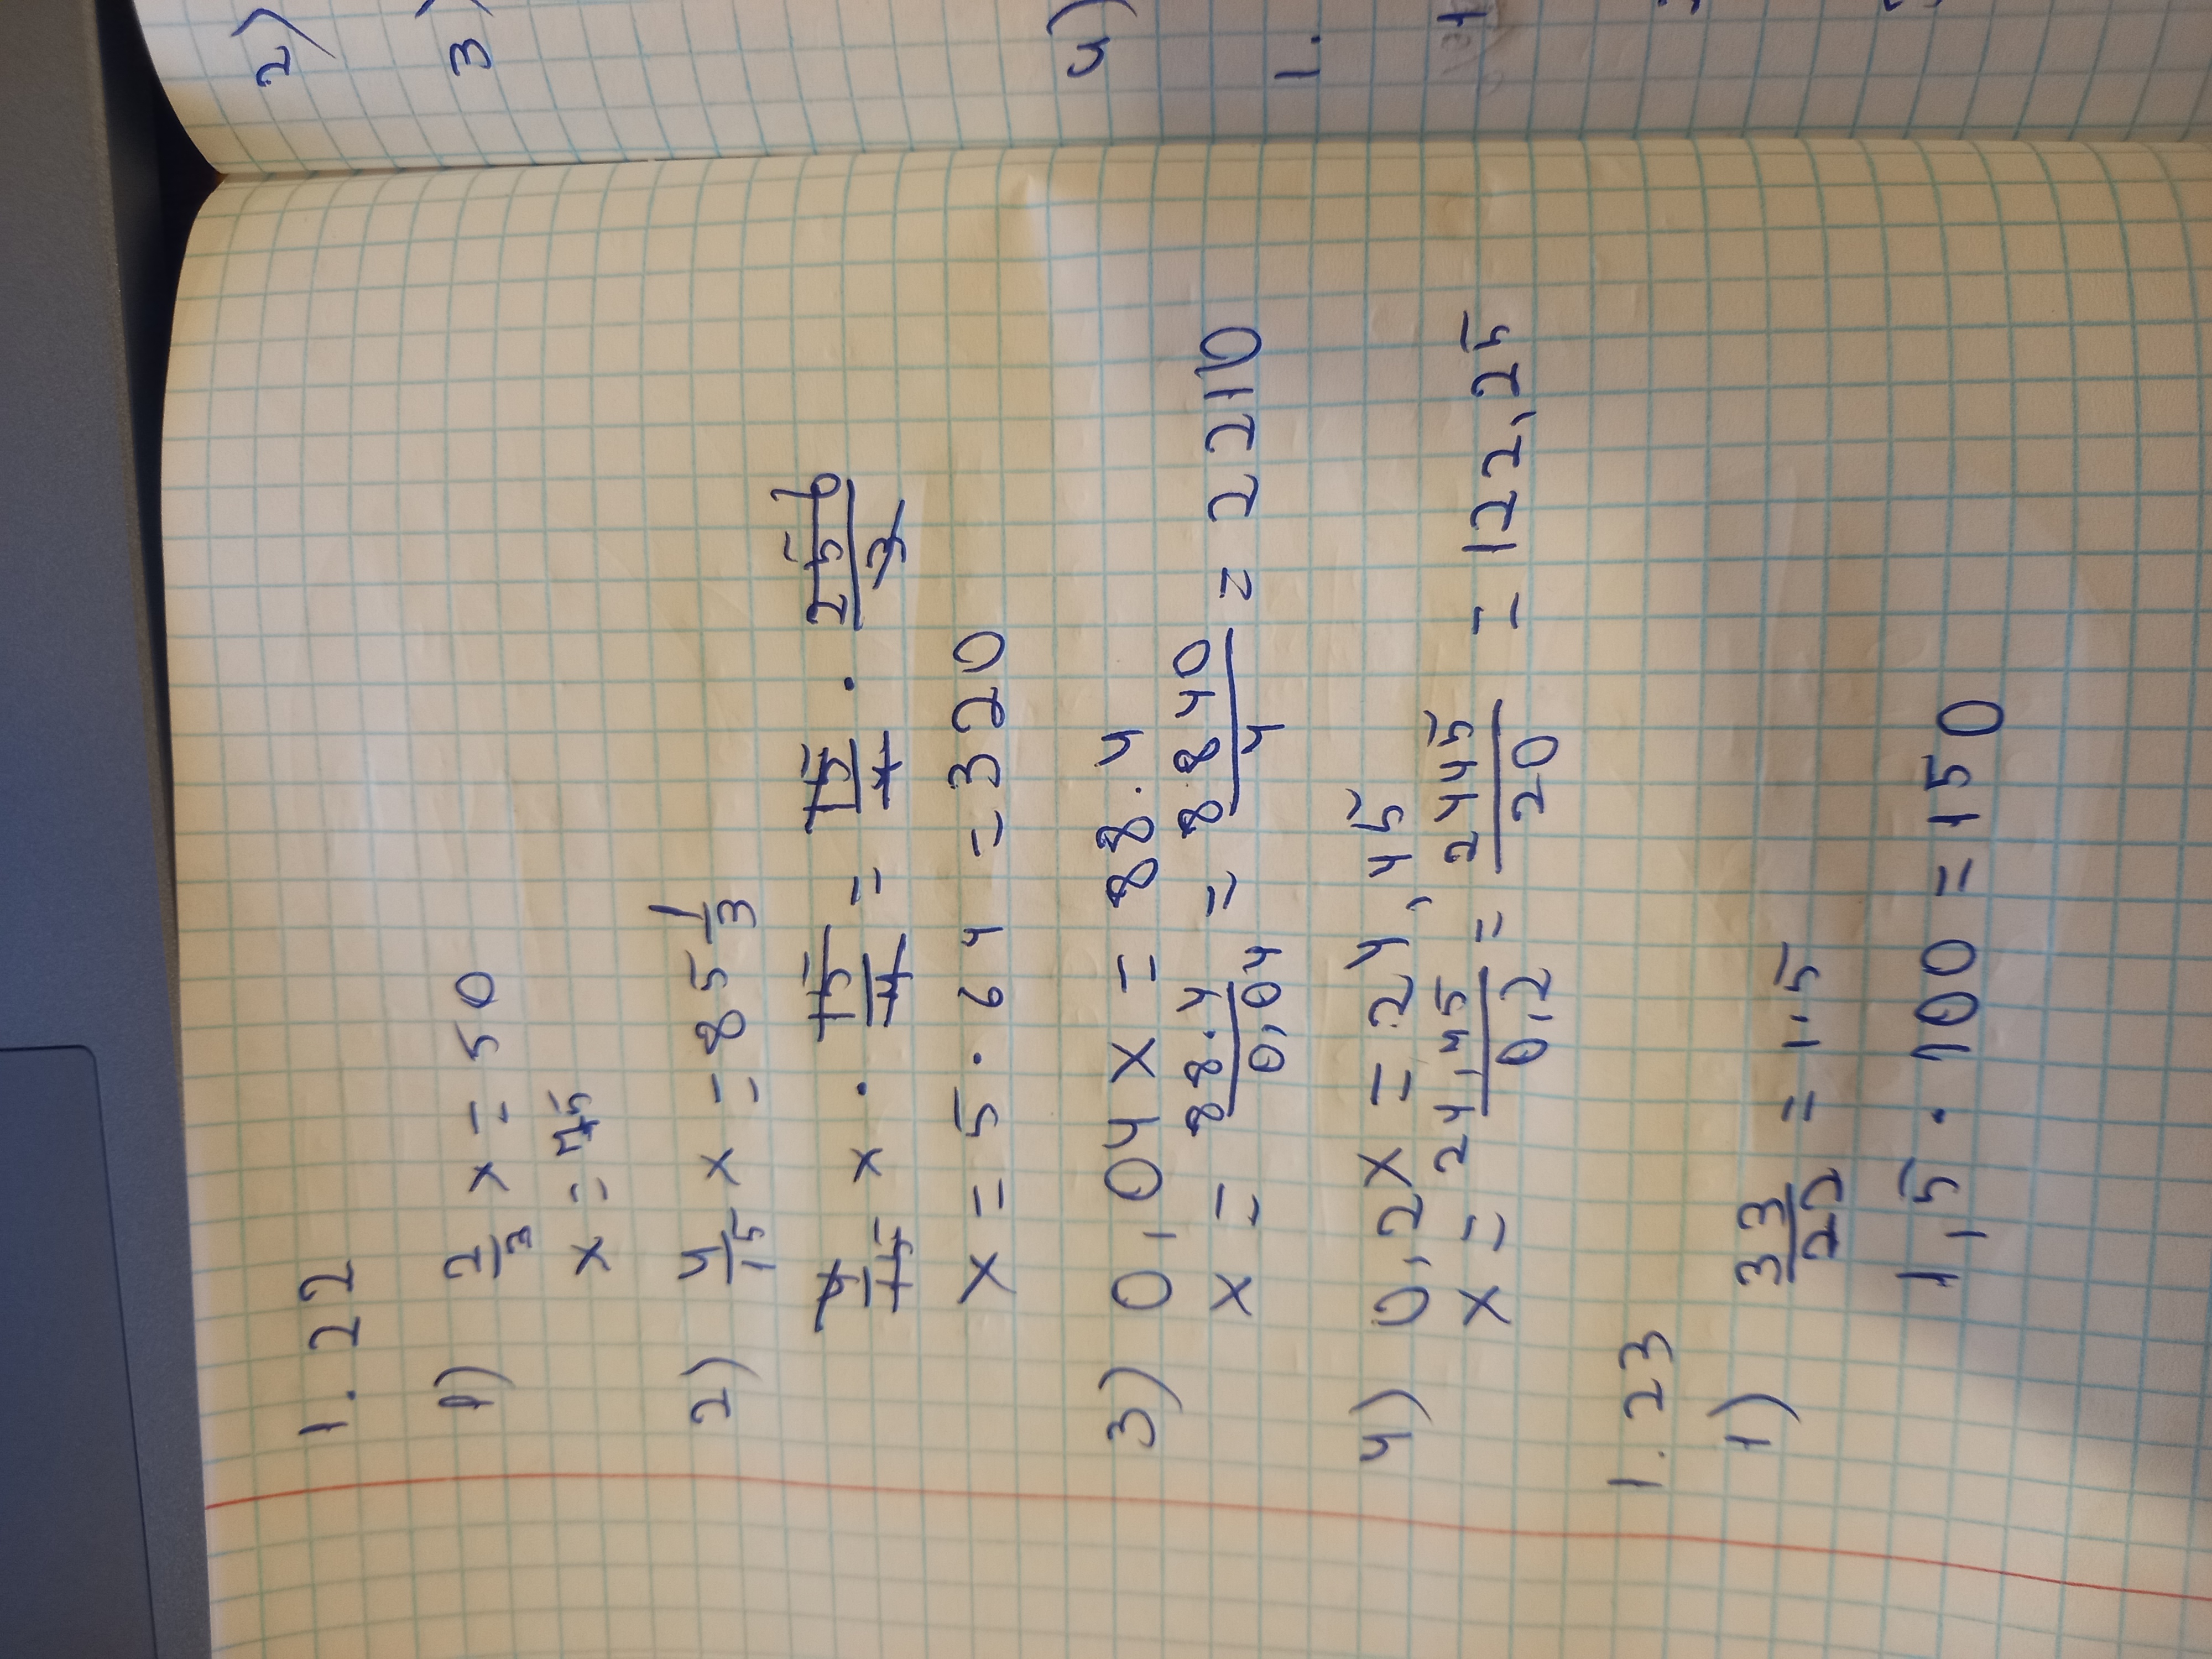 1.22
1) 2/3 x = 50
x = 75
2) 4/15 x = 85 1/3
4/15 x · 15/4 = 15/4 · 256/3
x = 5 · 64 = 320
3) 0,04x = 88.4
x = 88.4/0,04 = 8840/4 = 2210
4) 0,2x = 24,45
x = 24,45/0,2 = 2445/20 = 122,25
1.23
1) 33/22 = 1.5
1,5 · 100 = 150
2)
3)
4)
1.